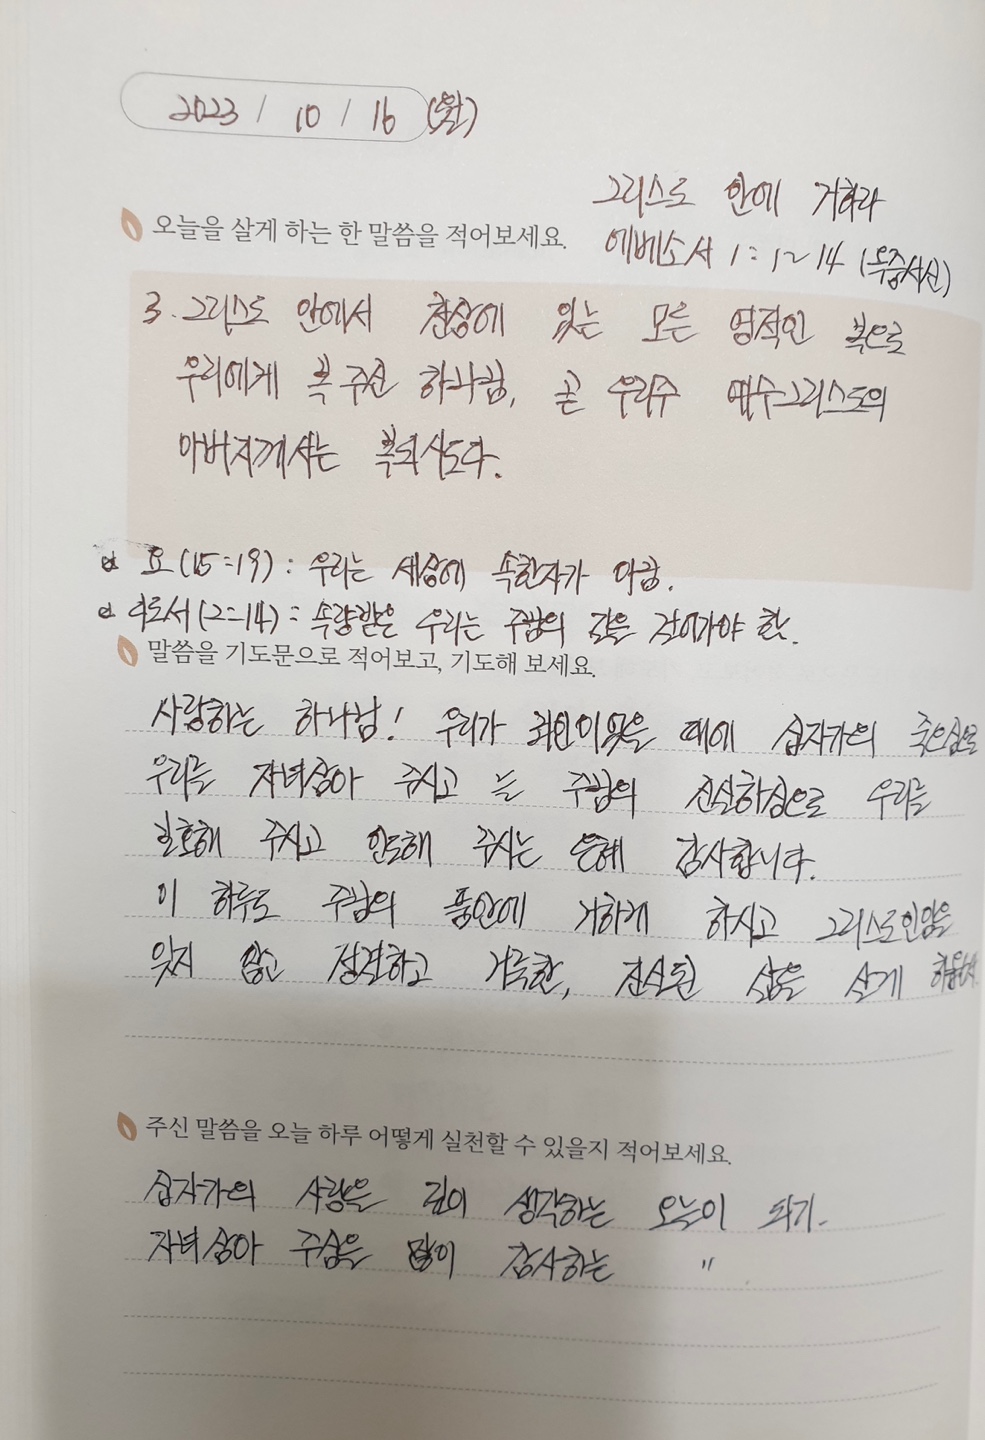 2023 / 10 / 16 (월)
그리스도 안에 거하라
오늘을 살게 하는 한 말씀을 적어보세요.
에베소서 1:1~14 (옥중서신)
3. 그리스도 안에서 천상에 있는 모든 영적인 복으로
우리에게 복 주신 하나님, 곧 우리주 예수그리스도의
아버지께서는 복되시도다.
요(15:19) : 우리는 세상에 속한자가 아님.
디도서(2:14) : 속량받은 우리는 주님의 길을 걸어가야 함.
말씀을 기도문으로 적어보고, 기도해 보세요.
사랑하는 하나님! 우리가 죄인이었을 때에 십자가의 죽으심으로
우리를 자녀삼아 주시고 늘 주님의 신실하심으로 우리를
보호해 주시고 인도해 주시는 은혜 감사합니다.
이 하루도 주님의 품안에 거하게 하시고 그리스도인임을
잊지 않고 정결하고 거룩한, 진실된 삶을 살게 하옵소서
주신 말씀을 오늘 하루 어떻게 실천할 수 있을지 적어보세요.
십자가의 사랑을 깊이 생각하는 오늘이 되기.
자녀삼아 주심을 많이 감사하는 "